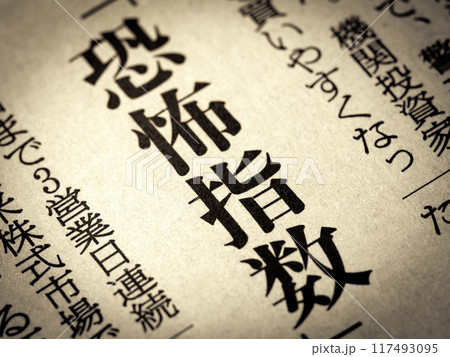 で、
買いやすくなっ
機関投資家
た
恐怖指数
まで3営業日連続
米株式市場で
る
117493095